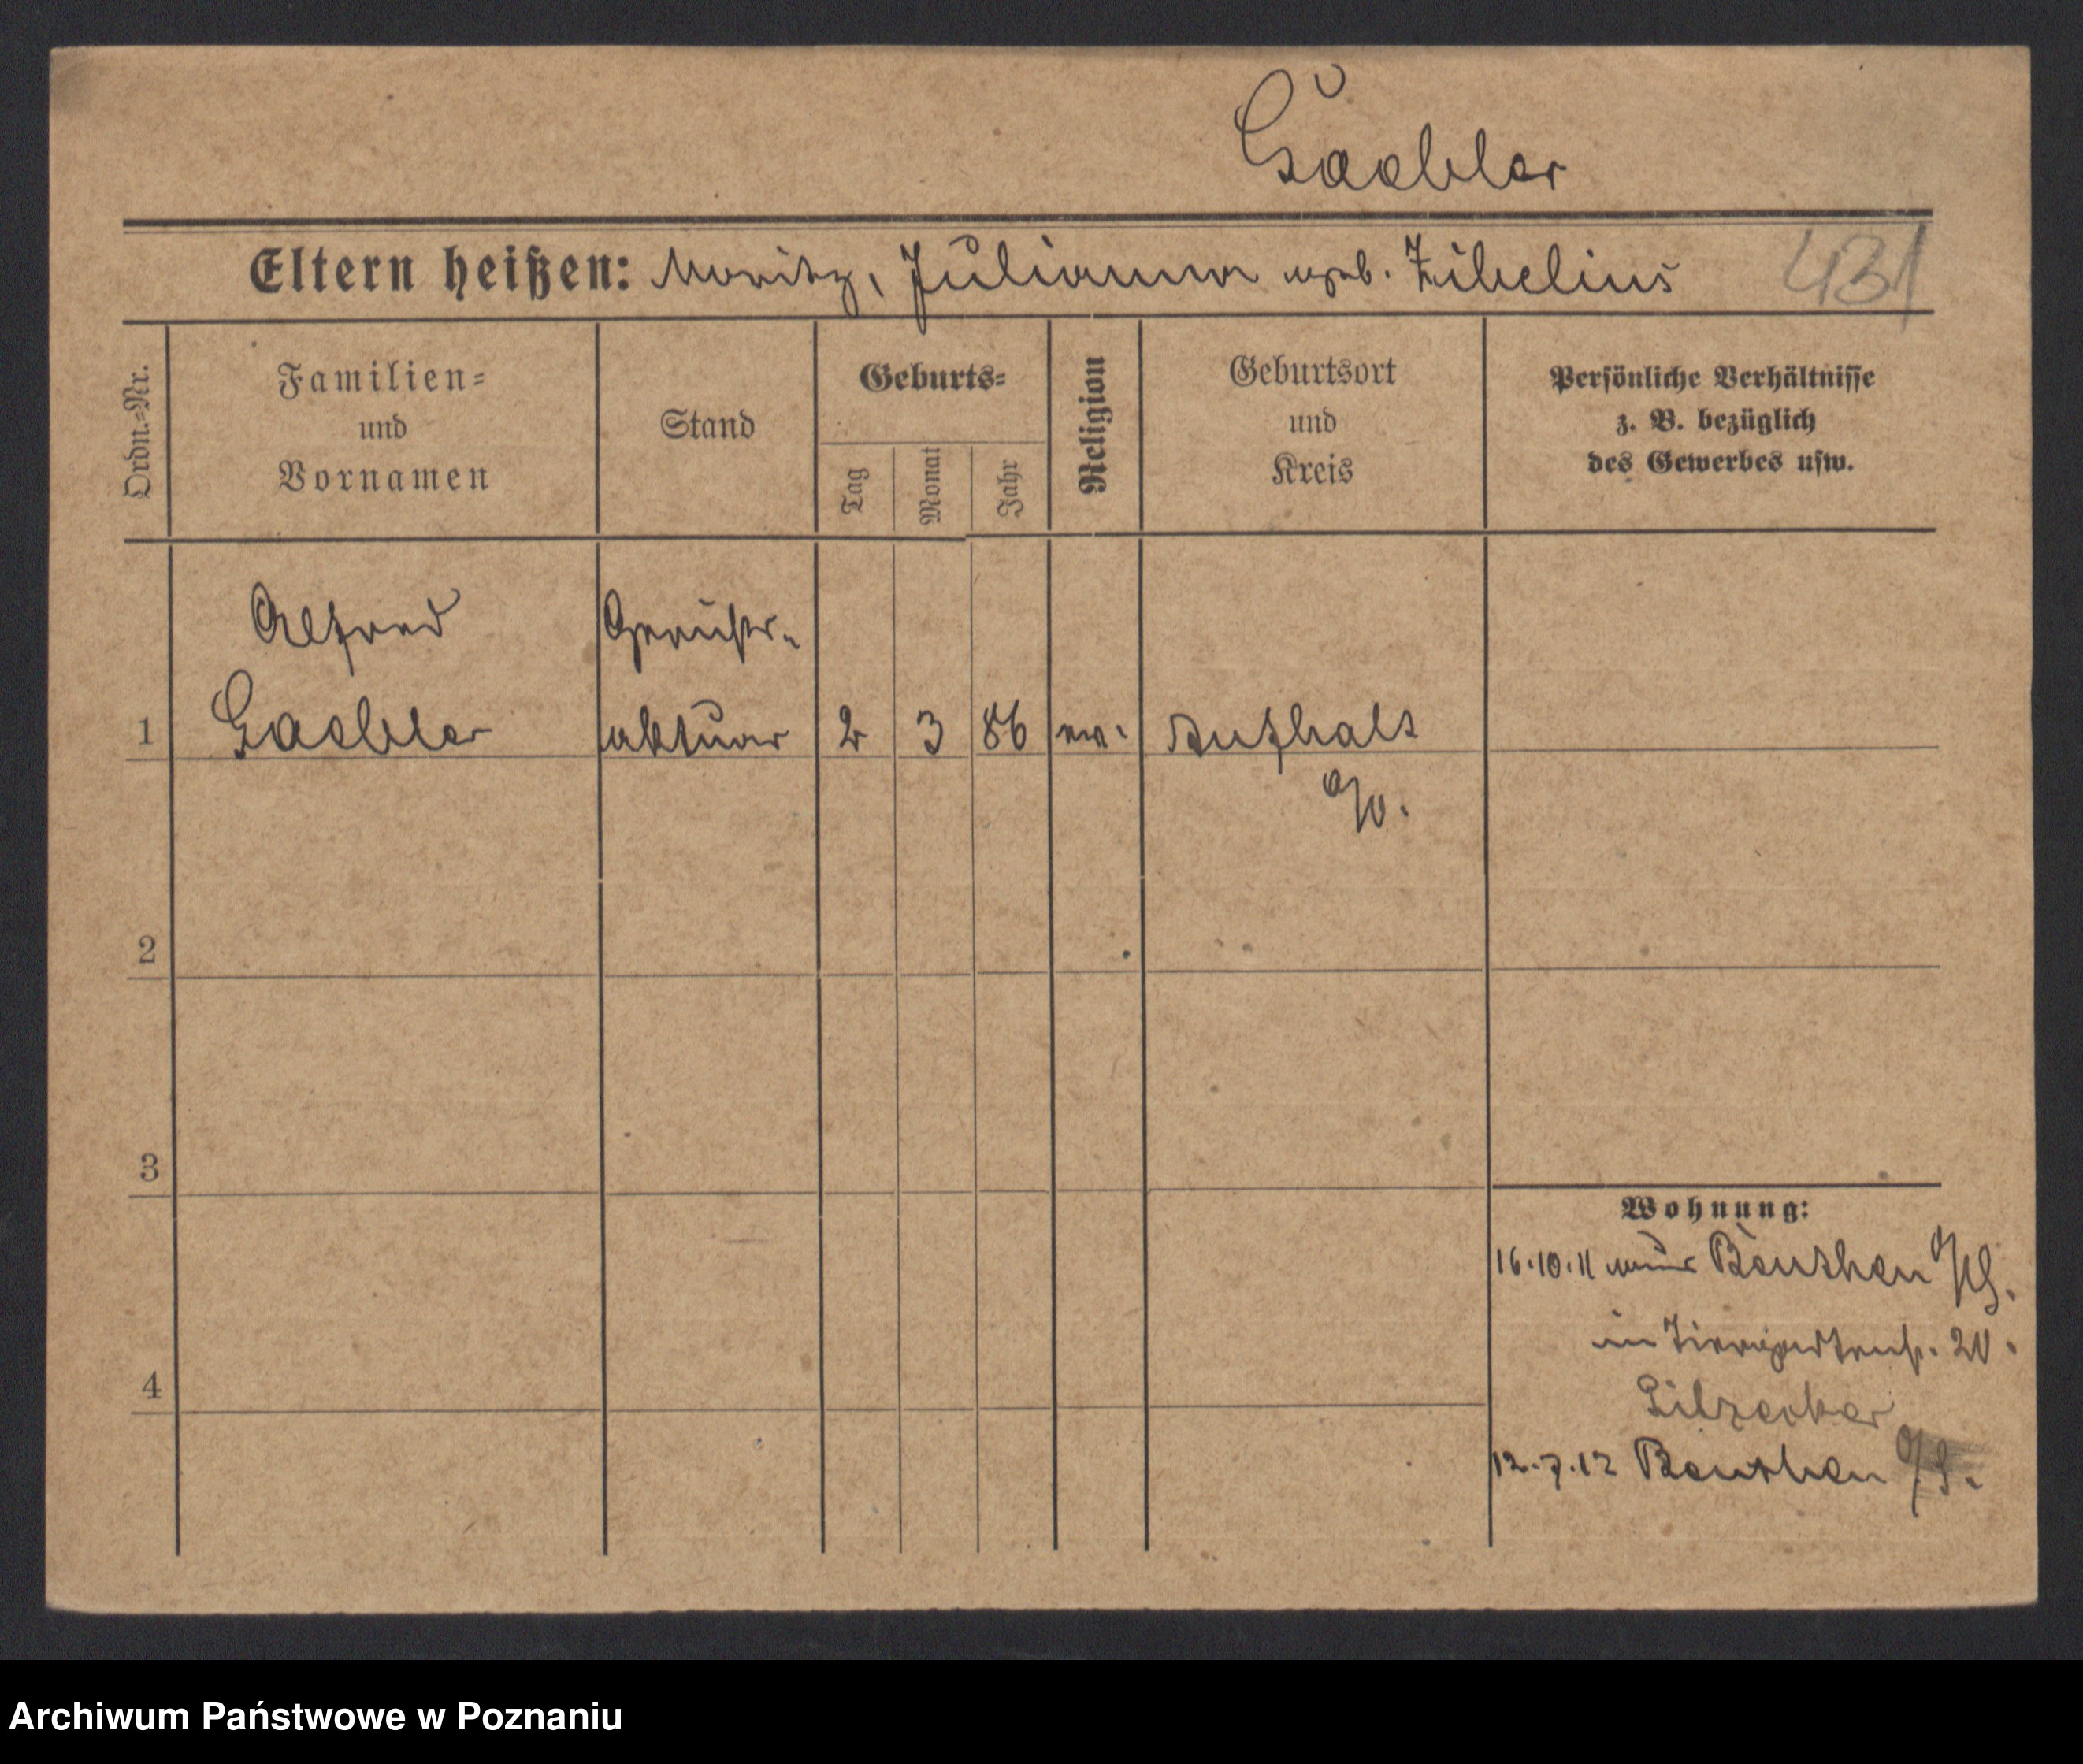 Gaebler
Eltern heißen: Moritz, Julianna geb. Zibelius 431
Ordn.-Nr.
Familien-
und
Vornamen
Stand
Geburts-
Tag
Monat
Jahr
Religion
Geburtsort
und
Kreis
Persönliche Verhältnisse
z. B. bezüglich
des Gewerbes usw.
Alfred Gerichts-
1 Gaebler aktuar 2 3 86 ev. Aufhalt
a/O.
2
3
4
Wohnung:
16.10.11 aus Beuthen
in Tiergartenstr. 20.
12.7.12 Beuthen
Archiwum Państwowe w Poznaniu